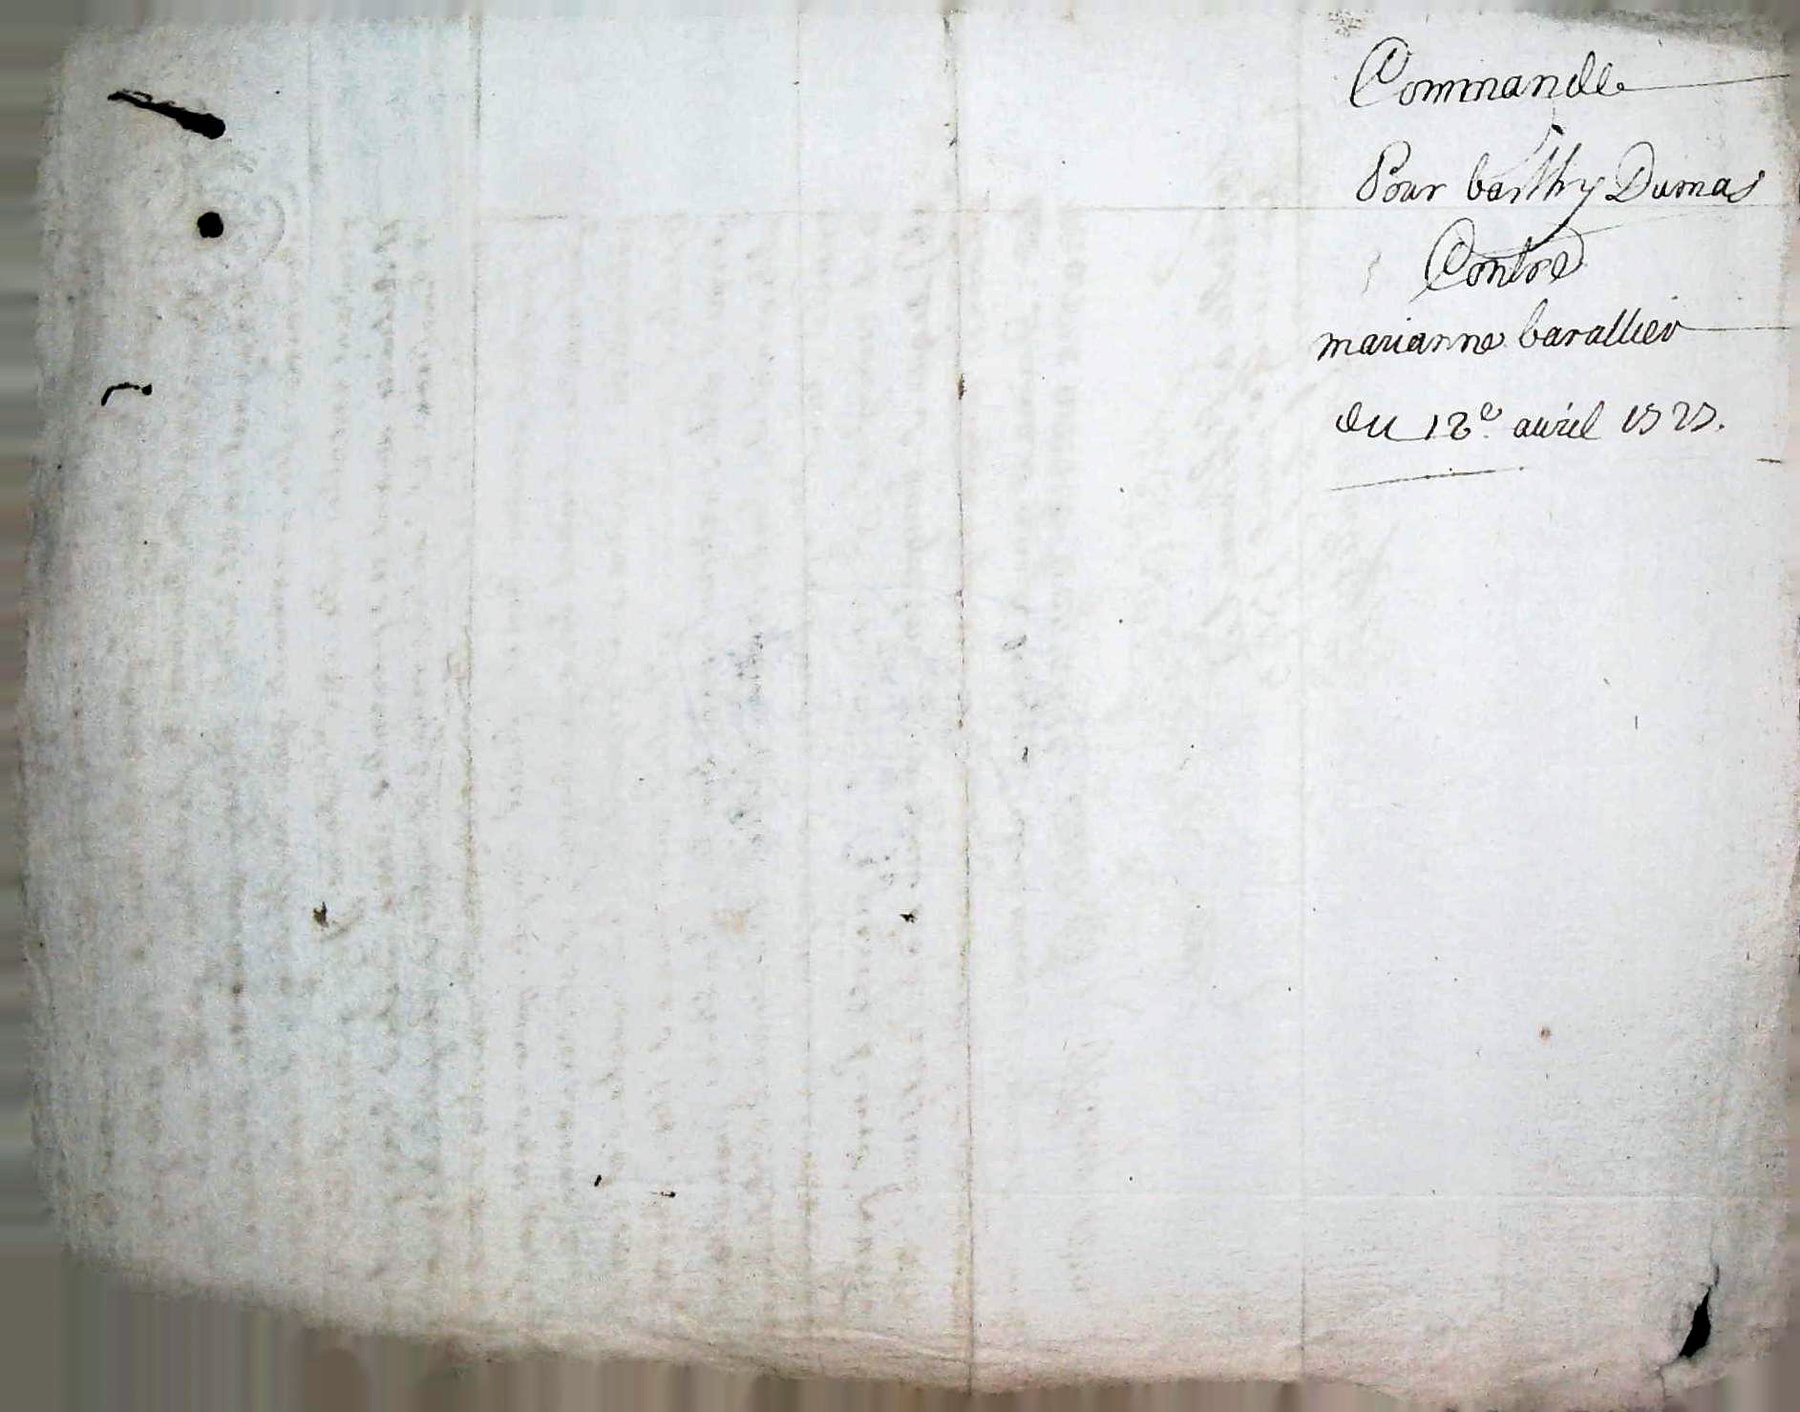 Commande
Pour barthy Dumas
Contre
marianne barallier
du 12e avril 1727.